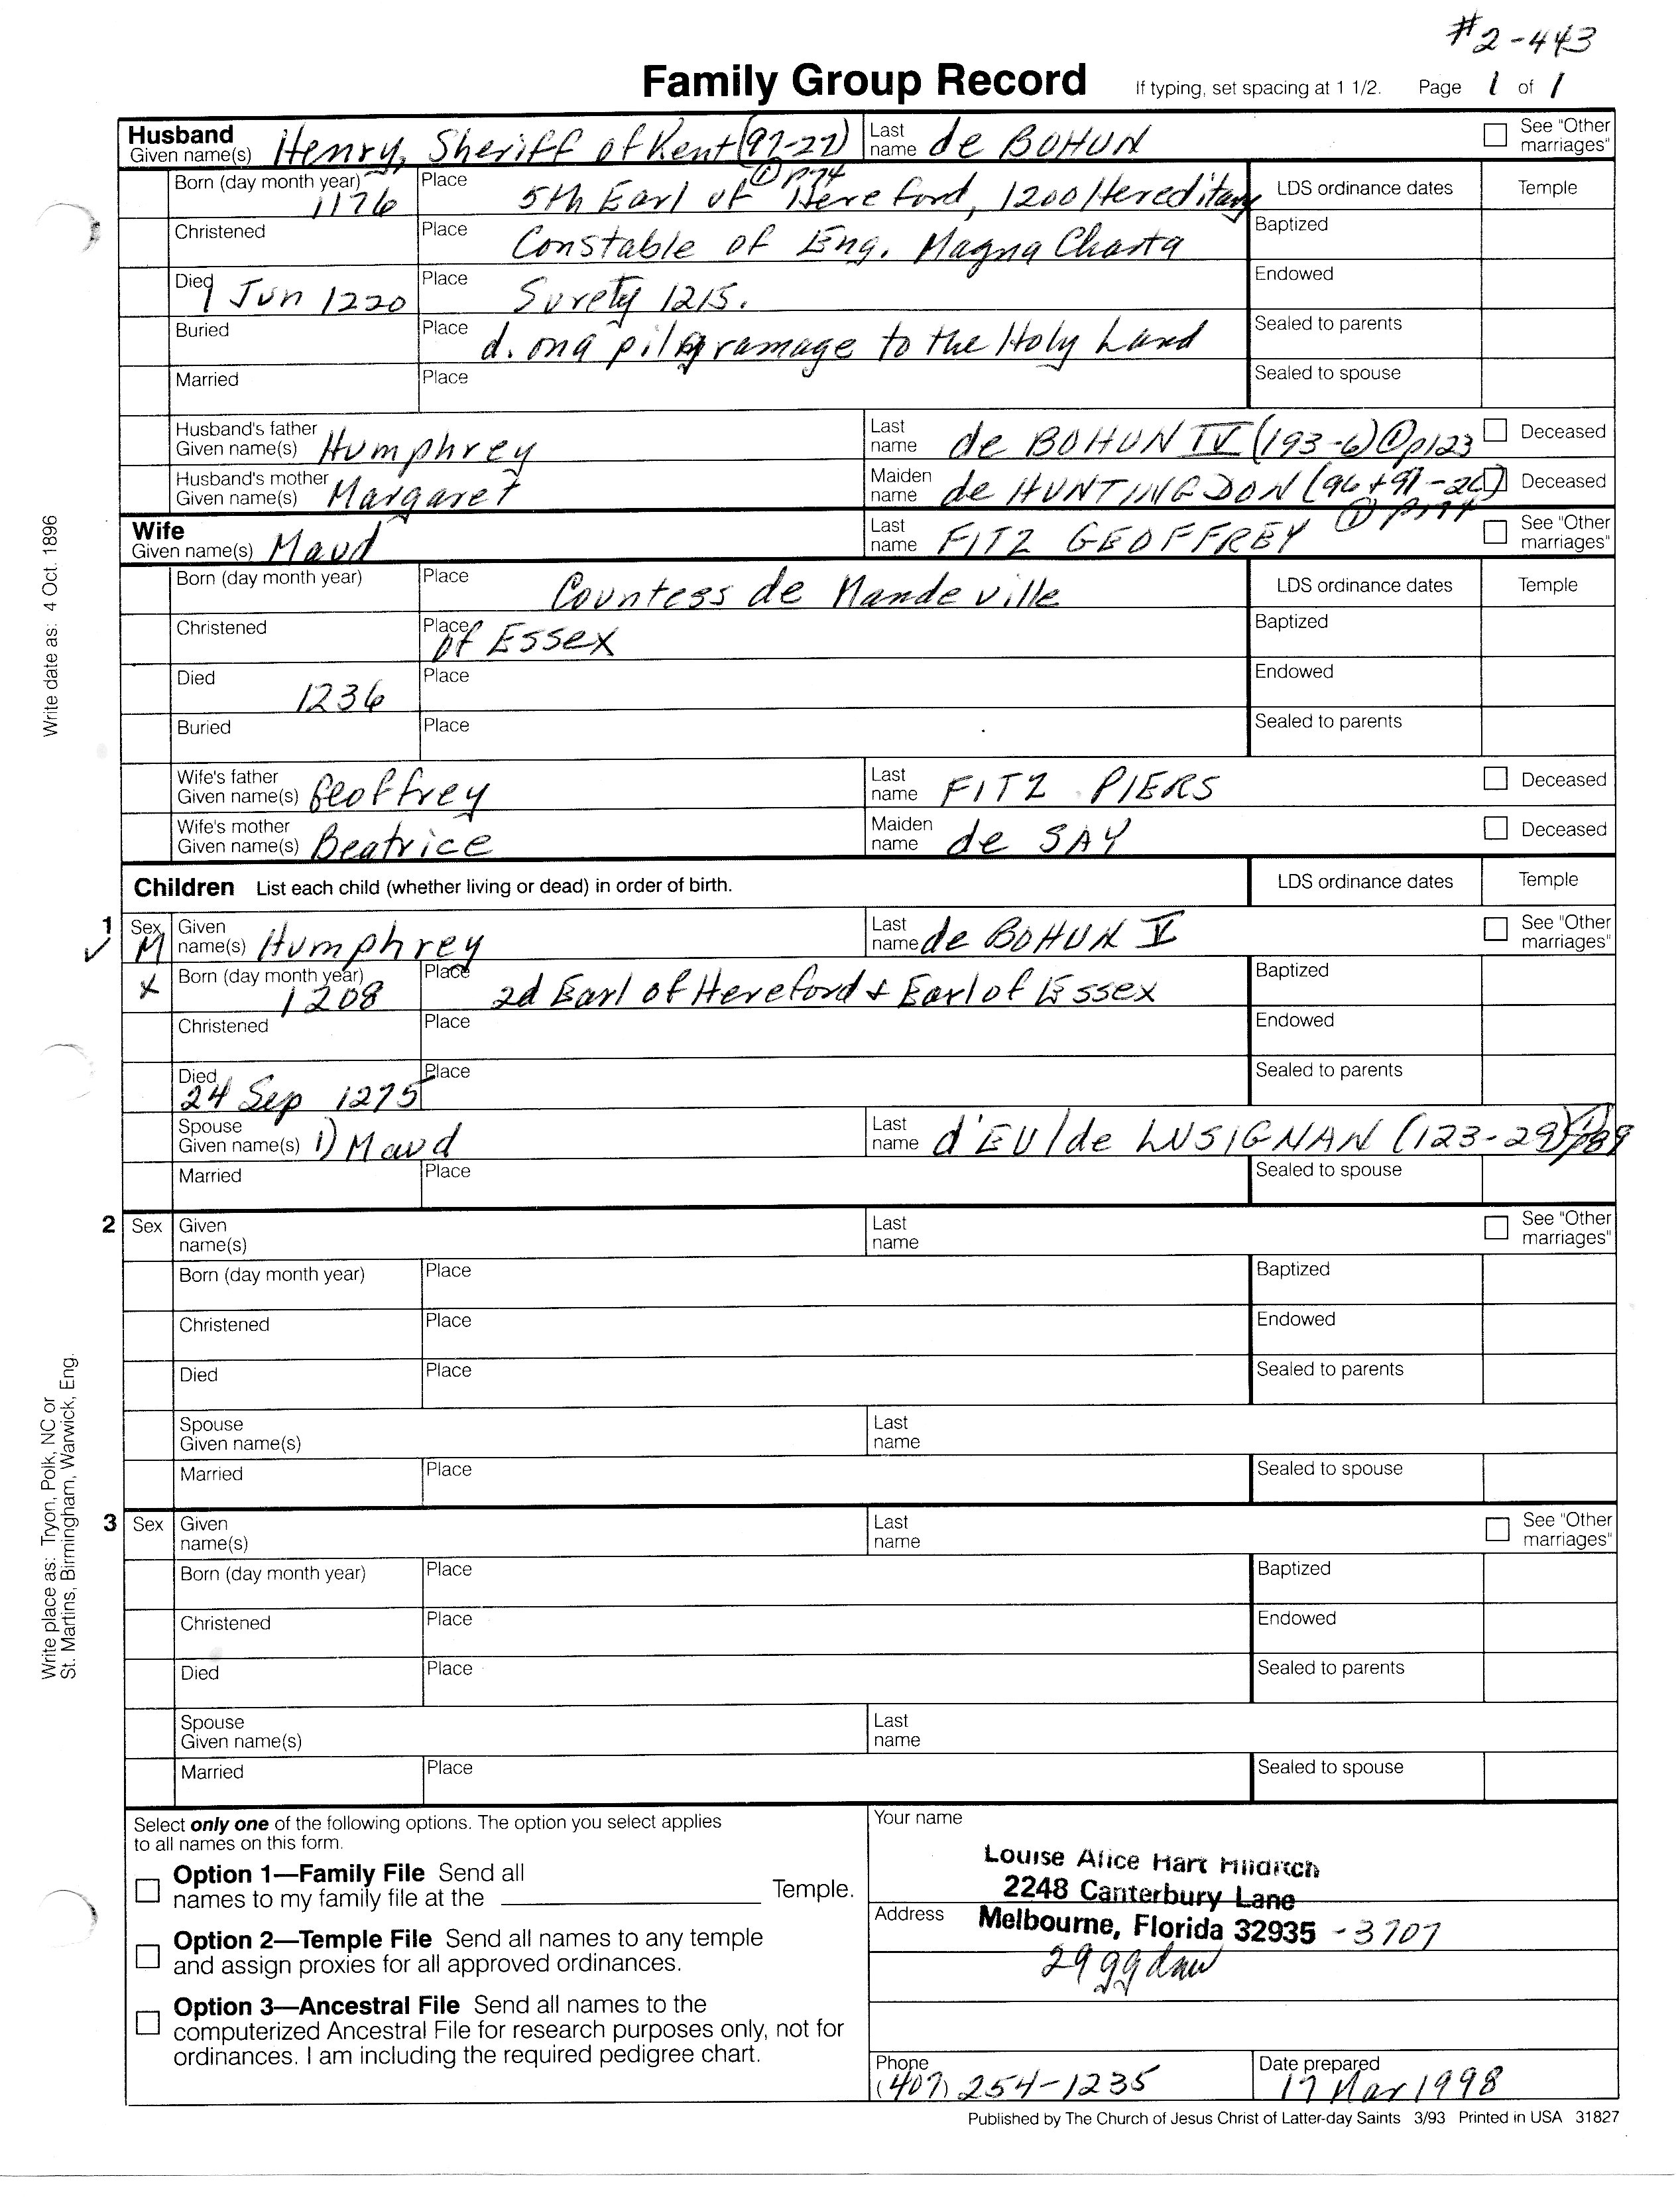 #2-443
Family Group Record If typing, set spacing at 1 1/2. Page 1 of 1
Husband
Given name(s) Henry, Sheriff of Kent (97-27) Last name de BOHUN See "Other marriages"
① p74
Born (day month year) 1176 Place 5th Earl of Hereford, 1200 Hereditary LDS ordinance dates Temple
Christened Place Constable of Eng. Magna Charta Baptized
Died 1 Jun 1220 Place Surety 1215. Endowed
Buried Place d. on a pilgramage to the Holy Land Sealed to parents
Married Place Sealed to spouse
Husband's father
Given name(s) Humphrey Last name de BOHUN IV (193-6) ① p123 Deceased
Husband's mother
Given name(s) Margaret Maiden name de HUNTINGDON (96+97-26) Deceased
Wife
Given name(s) Maud Last name FITZ GEOFFREY ① See "Other marriages"
Born (day month year) Place Countess de Mandeville LDS ordinance dates Temple
Christened Place of Essex Baptized
Died 1236 Place Endowed
Buried Place Sealed to parents
Wife's father
Given name(s) Geoffrey Last name FITZ PIERS Deceased
Wife's mother
Given name(s) Beatrice Maiden name de SAY Deceased
Children List each child (whether living or dead) in order of birth. LDS ordinance dates Temple
1 Sex M Given name(s) Humphrey Last name de BOHUN V See "Other marriages"
✓
X Born (day month year) 1208 Place 2d Earl of Hereford + Earl of Essex Baptized
Christened Place Endowed
Died 24 Sep 1275 Place Sealed to parents
Spouse
Given name(s) 1) Maud Last name d'EU/de LUSIGNAN (123-29)
Married Place Sealed to spouse
2 Sex Given name(s) Last name See "Other marriages"
Born (day month year) Place Baptized
Christened Place Endowed
Died Place Sealed to parents
Spouse
Given name(s) Last name
Married Place Sealed to spouse
3 Sex Given name(s) Last name See "Other marriages"
Born (day month year) Place Baptized
Christened Place Endowed
Died Place Sealed to parents
Spouse
Given name(s) Last name
Married Place Sealed to spouse
Write date as: 4 Oct. 1896
Write place as: Tryon, Polk, NC or
St. Martins, Birmingham, Warwick, Eng.
Select only one of the following options. The option you select applies
to all names on this form.
Option 1—Family File Send all
names to my family file at the Temple.
Option 2—Temple File Send all names to any temple
and assign proxies for all approved ordinances.
Option 3—Ancestral File Send all names to the
computerized Ancestral File for research purposes only, not for
ordinances. I am including the required pedigree chart.
Your name
Louise Alice Hart Hilditch
2248 Canterbury Lane
Address Melbourne, Florida 32935 -3707
29 gg daw
Phone (407) 254-1235 Date prepared 17 Mar 1998
Published by The Church of Jesus Christ of Latter-day Saints 3/93 Printed in USA 31827